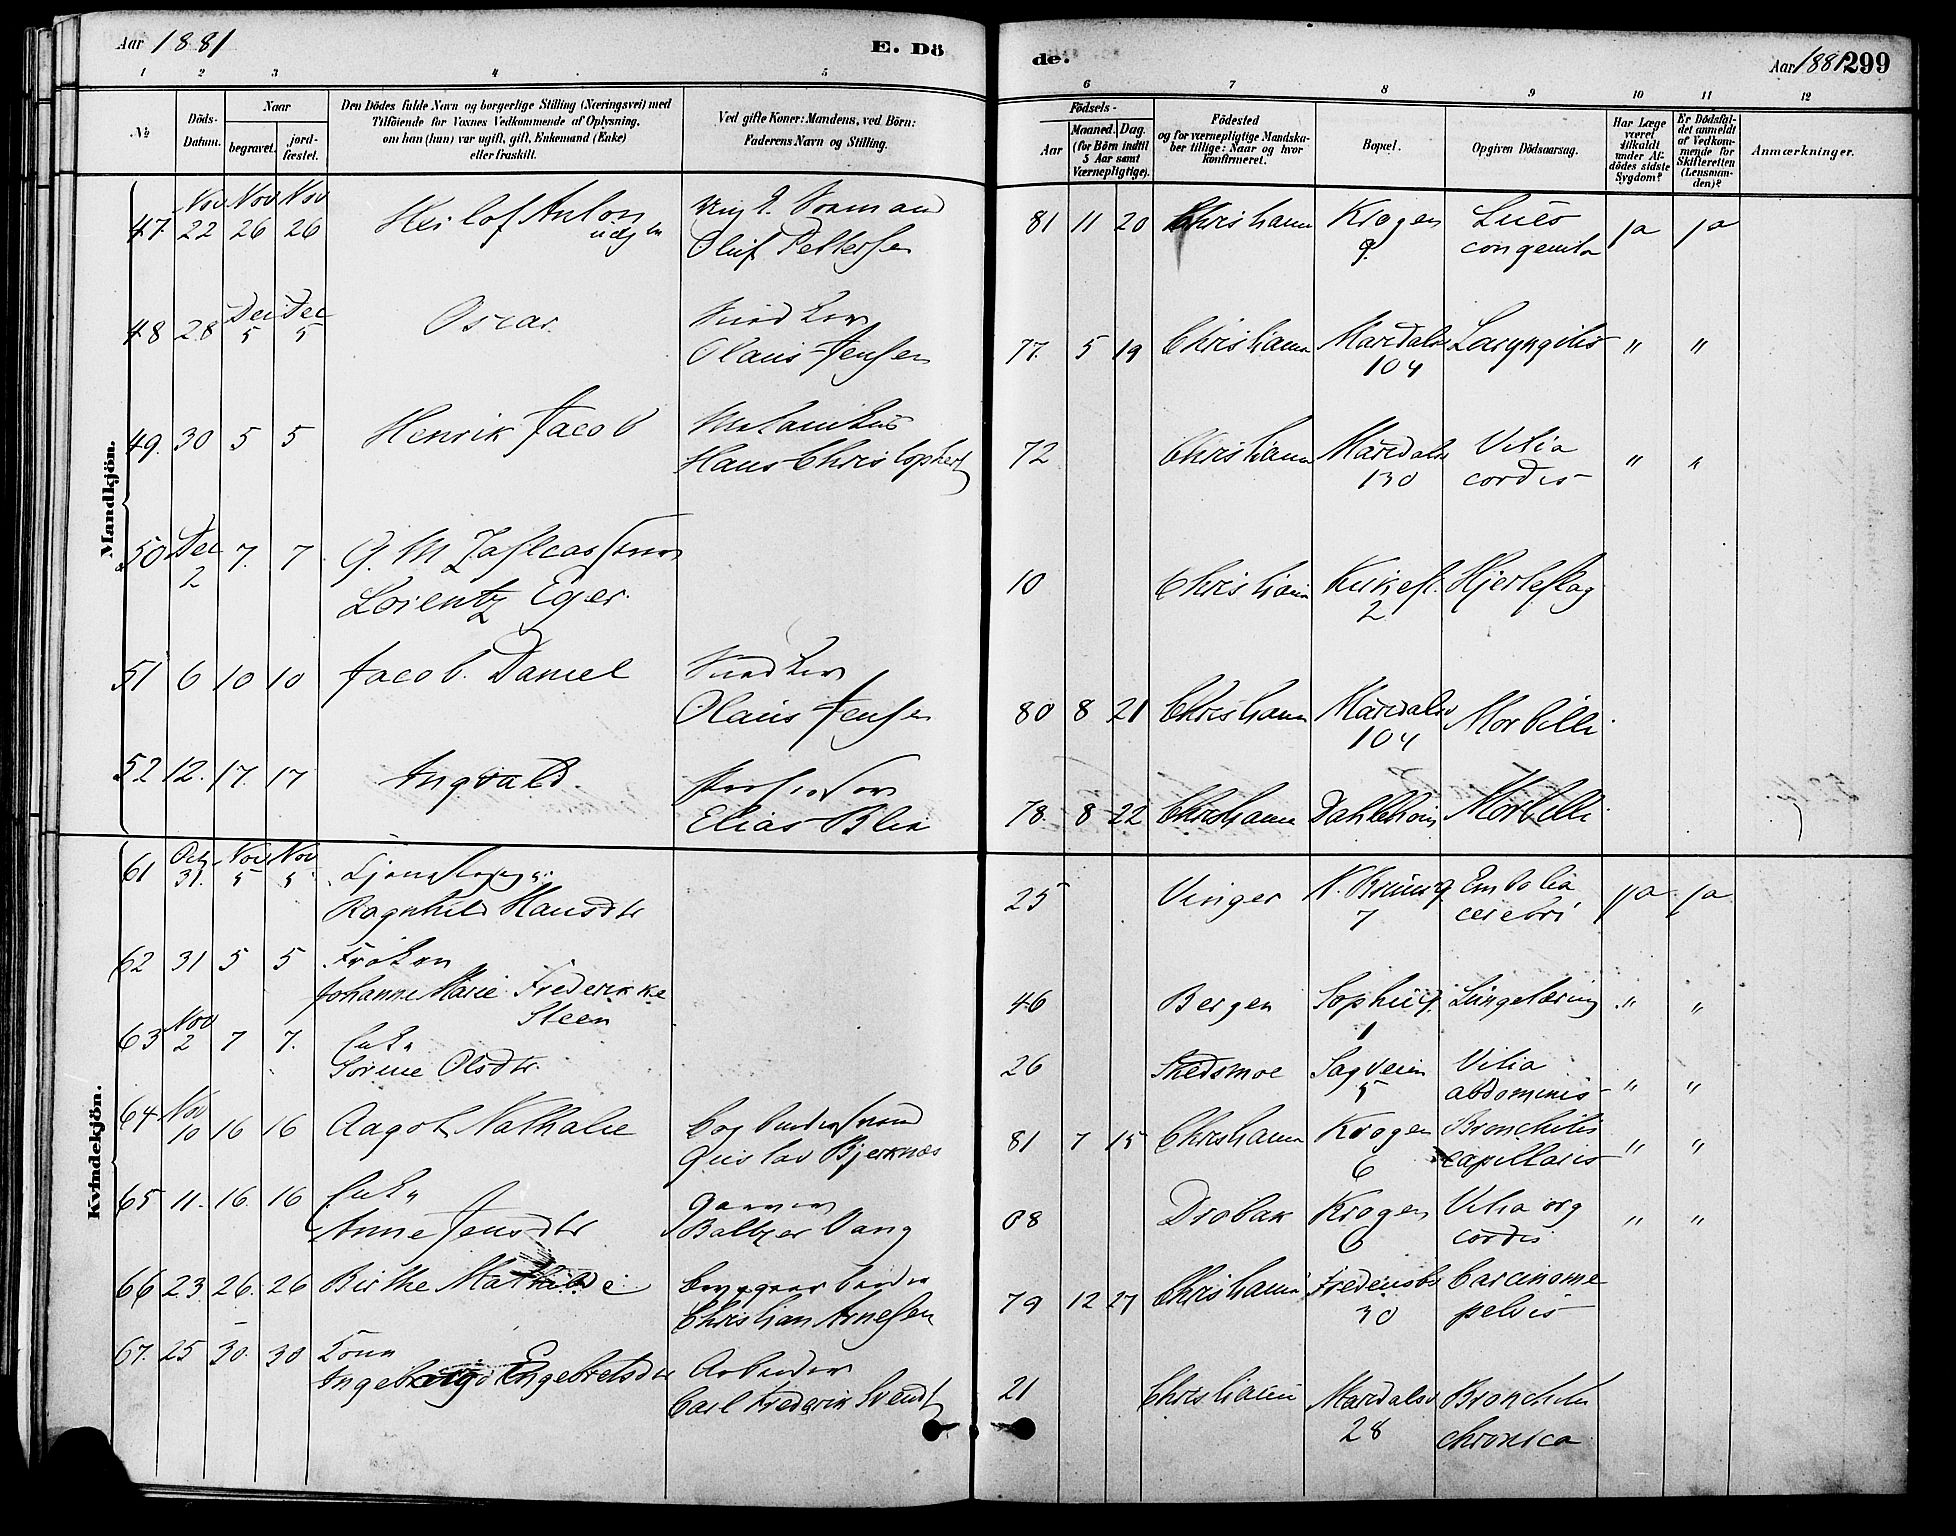 Aar 1881
E. Dö
de.
Aar 1881 299
1 2 3 4 5 6 7 8 9 10 11 12
№
Döds-
Datum.
Naar
begravet.
jord-
fæstet.
Den Dödes fulde Navn og borgerlige Stilling (Næringsvei) med
Tilföiende for Voxnes Vedkommende af Oplysning,
om han (hun) var ugift, gift, Enkemand (Enke)
eller fraskilt.
Ved gifte Koner: Mandens, ved Börn:
Faderens Navn og Stilling.
Födsels-
Aar
Maaned. Dag.
(for Börn indtil
5 Aar samt
Værnepligtige).
Födested
og for værnepligtige Mandska-
ber tillige: Naar og hvor
konfirmeret.
Bopæl.
Opgiven Dödsaarsag.
Har Læge
været
tilkaldt
under Af-
dödes sidste
Sygdom?
Er Dödsfal-
det anmeldt
af Vedkom-
mende for
Skifteretten
(Lensman-
den)?
Anmærkninger.
Mandkjön.
47. Nov 22 Nov 26 Nov 26 Anton
Oluf Pettersen
81 11 20 Christiania Krogen 9 Lues congenita ja ja
48 28 Dec 5 Dec 5 Oscar
Olaus Jensen
77. 5 19 Christiania Maridalsv 104 Laryngitis " "
49. 30 5 5 Henrik Jacob
Hans Christophers
72 Christiania Maridalsv 130 Vitia cordis " "
50 Dec 2 7. 7
Lorentz Eger.
10 Christiania Kirkest. 2 Hjerteslag
51 6 10 10 Jacob Daniel
Olaus Jensen
80 8 21 Christiania Maridalsv 104 Morbilli
52 12. 17. 17 Ingvald
Professor
Elias Blix
78. 8 22 Christiania Morbilli
Kvindekjön.
61 Oct 31. Nov 5 Nov 5
Ragnhild Hansdtr
25 Vinger 7 Embolia cerebri ja ja
62 31 5 5 Fröken
Johanne Marie Frederikke
Steen
46 Bergen 1 " "
63 Nov 2 7 7. Enke
Olsdtr.
26 Skedsmoe Sagveien 5 Vitia abdominis " "
64 Nov 10 16 16 Aagot Nathalie
Gustav Bjerknæs
81 7 15 Christiania Krogen 6 Bronchitis capillaris " "
65 11. 16. 16 Enke
Anne Jensdtr
Garver
Baltzer Vang
08 Drobak Krogen 6 Vitia org cordis " "
66 23. 26. 26 Birthe Mathilde
Christian Arnesen
79 12 27 Christiania 30 Carcinome pelvis
67. 25 30. 30 Kone
Engebretsdtr
Arbeider
Carl Frederik Svendt
21 Christiania Maridalsv 28 Bronchitis chronica